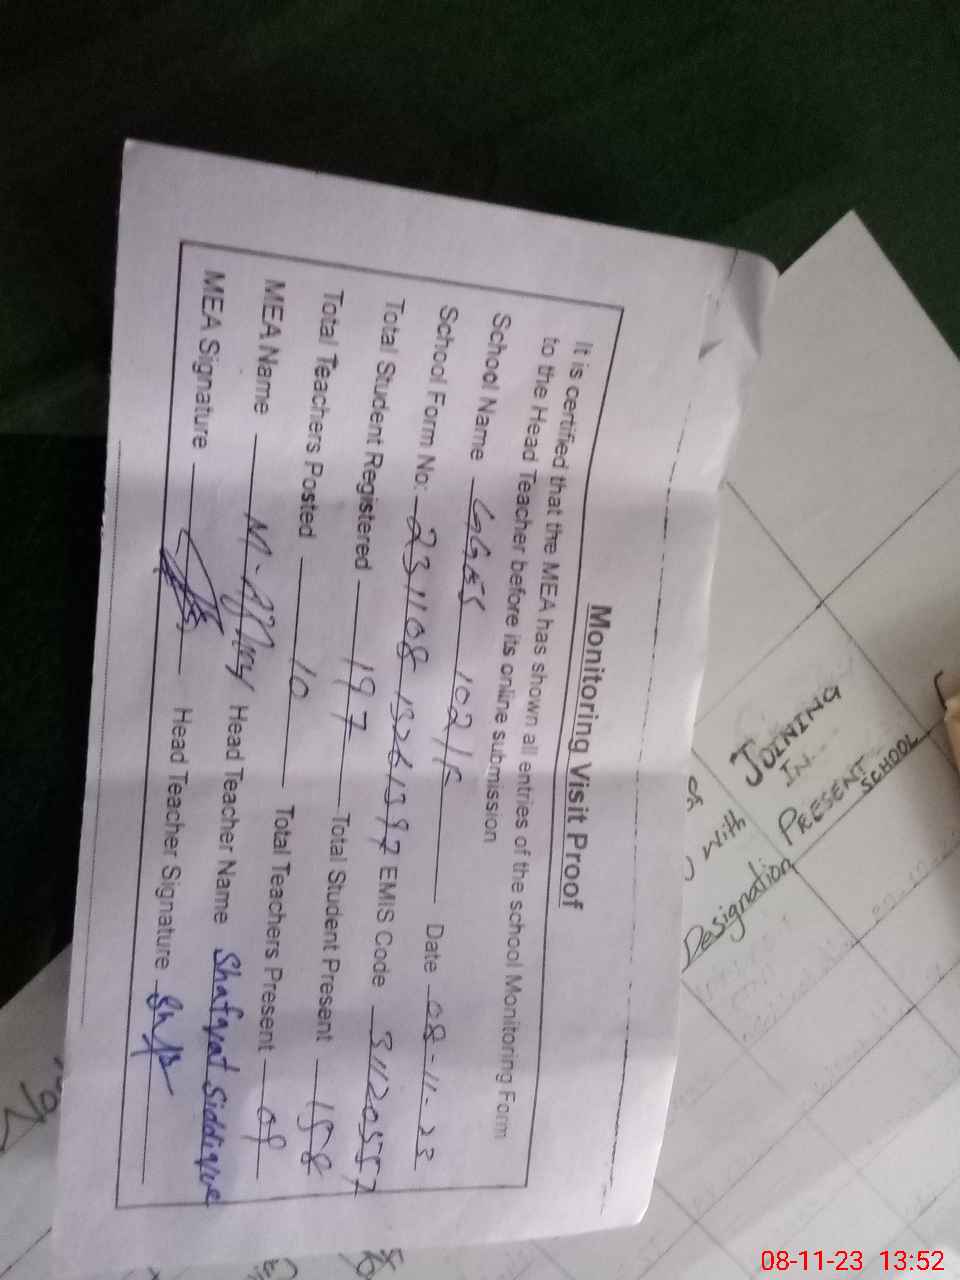 Monitoring Visit Proof
It is certified that the MEA has shown all entries of the school Monitoring Form
to the Head Teacher before its online submission
School Name GGES 102/F Date 08-11-23
School Form No: 231108 13261397 EMIS Code 31120557
Total Student Registered 197 Total Student Present 158
Total Teachers Posted 10 Total Teachers Present 09
MEA Name Head Teacher Name Shafqat Siddique
MEA Signature Head Teacher Signature
JOINING
IN...
PRESENT
SCHOOL
with
Designation
08-11-23 13:52